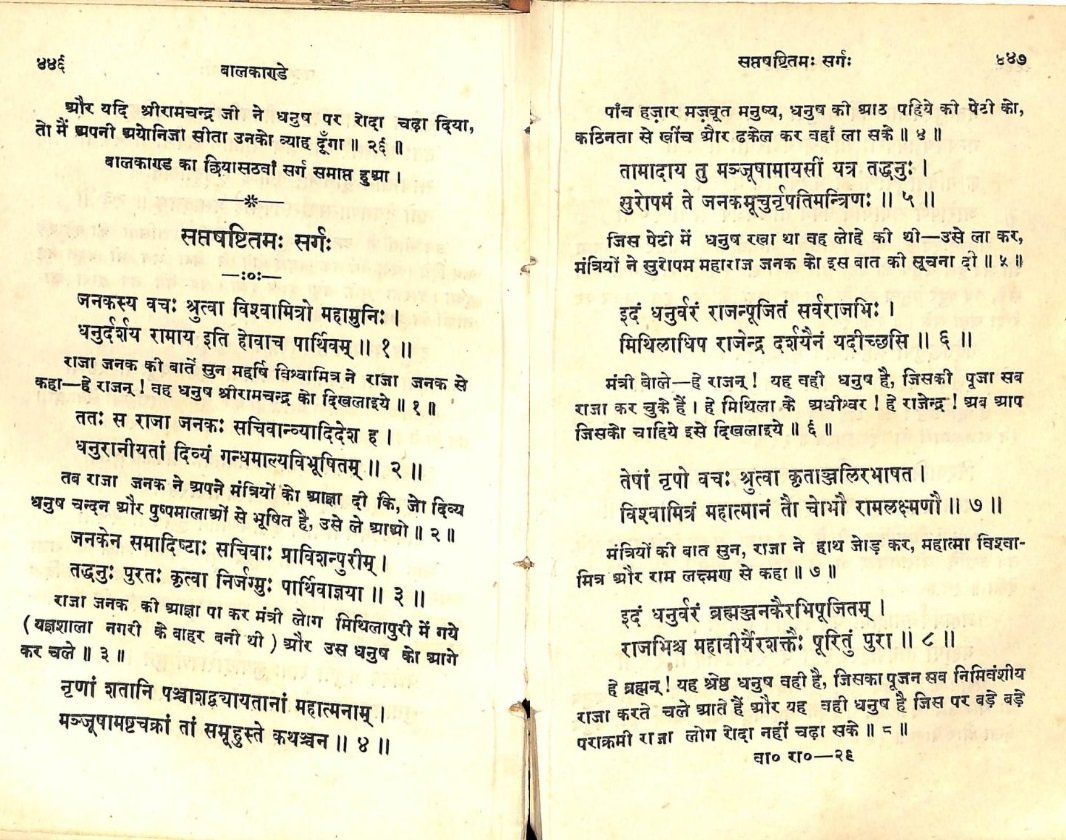 ४४६
बालकाण्डे
और यदि श्रीरामचन्द्र जी ने धनुष पर रोदा चढ़ा दिया,
तो मैं अपनी अयोनिजा सीता उनको व्याह दूँगा ॥ २६ ॥
बालकाण्ड का छियासठवाँ सर्ग समाप्त हुआ ।
—*—
सप्तषष्टितमः सर्गः
—:०:—
जनकस्य वचः श्रुत्वा विश्वामित्रो महामुनिः ।
धनुर्दर्शय रामाय इति होवाच पार्थिवम् ॥ १ ॥
राजा जनक की बातें सुन महर्षि विश्वामित्र ने राजा जनक से
कहा—हे राजन् ! वह धनुष श्रीरामचन्द्र को दिखलाइये ॥ १ ॥
ततः स राजा जनकः सचिवान्व्यादिदेश ह ।
धनुरानीयतां दिव्यं गन्धमाल्यविभूषितम् ॥ २ ॥
तब राजा जनक ने अपने मंत्रियों को आज्ञा दी कि, जो दिव्य
धनुष चन्दन और पुष्पमालाओं से भूषित है, उसे ले आओ ॥ २ ॥
जनकेन समादिष्टाः सचिवाः प्राविशन्पुरीम् ।
तद्धनुः पुरतः कृत्वा निर्जग्मुः पार्थिवाज्ञया ॥ ३ ॥
राजा जनक की आज्ञा पा कर मंत्री लोग मिथिलापुरी में गये
( यज्ञशाला नगरी के बाहर बनी थी ) और उस धनुष को आगे
कर चले ॥ ३ ॥
नृणां शतानि पञ्चाशद्व्यायतानां महात्मनाम् ।
मञ्जूषामष्टचक्रां तां समूहुस्ते कथञ्चन ॥ ४ ॥
सप्तषष्टितमः सर्गः
४४७
पाँच हज़ार मज़बूत मनुष्य, धनुष की आठ पहिये की पेटी को,
कठिनता से खींच और ढकेल कर वहाँ ला सके ॥ ४ ॥
तामादाय तु मञ्जूषामायसीं यत्र तद्धनुः ।
सुरोपमं ते जनकमूचुर्नृपतिमन्त्रिणः ॥ ५ ॥
जिस पेटी में धनुष रखा था वह लोहे की थी—उसे ला कर,
मंत्रियों ने सुरोपम महाराज जनक को इस बात की सूचना दी ॥ ५ ॥
इदं धनुर्वरं राजन्पूजितं सर्वराजभिः ।
मिथिलाधिप राजेन्द्र दर्शयैनं यदीच्छसि ॥ ६ ॥
मंत्री बोले—हे राजन् ! यह वही धनुष है, जिसकी पूजा सब
राजा कर चुके हैं । हे मिथिला के अधीश्वर ! हे राजेन्द्र ! अब आप
जिसको चाहिये इसे दिखलाइये ॥ ६ ॥
तेषां नृपो वचः श्रुत्वा कृताञ्जलिरभाषत ।
विश्वामित्रं महात्मानं तौ चोभौ रामलक्ष्मणौ ॥ ७ ॥
मंत्रियों की बात सुन, राजा ने हाथ जोड़ कर, महात्मा विश्वा-
मित्र और राम लक्ष्मण से कहा ॥ ७ ॥
इदं धनुर्वरं ब्रह्मञ्जनकैरभिपूजितम् ।
राजभिश्च महावीर्यैरशक्तैः पूरितुं पुरा ॥ ८ ॥
हे ब्रह्मन् ! यह श्रेष्ठ धनुष वही है, जिसका पूजन सब निमिवंशीय
राजा करते चले आते हैं और यह वही धनुष है जिस पर बड़े बड़े
पराक्रमी राजा लोग रोदा नहीं चढ़ा सके ॥ ८ ॥
वा० रा०—२६